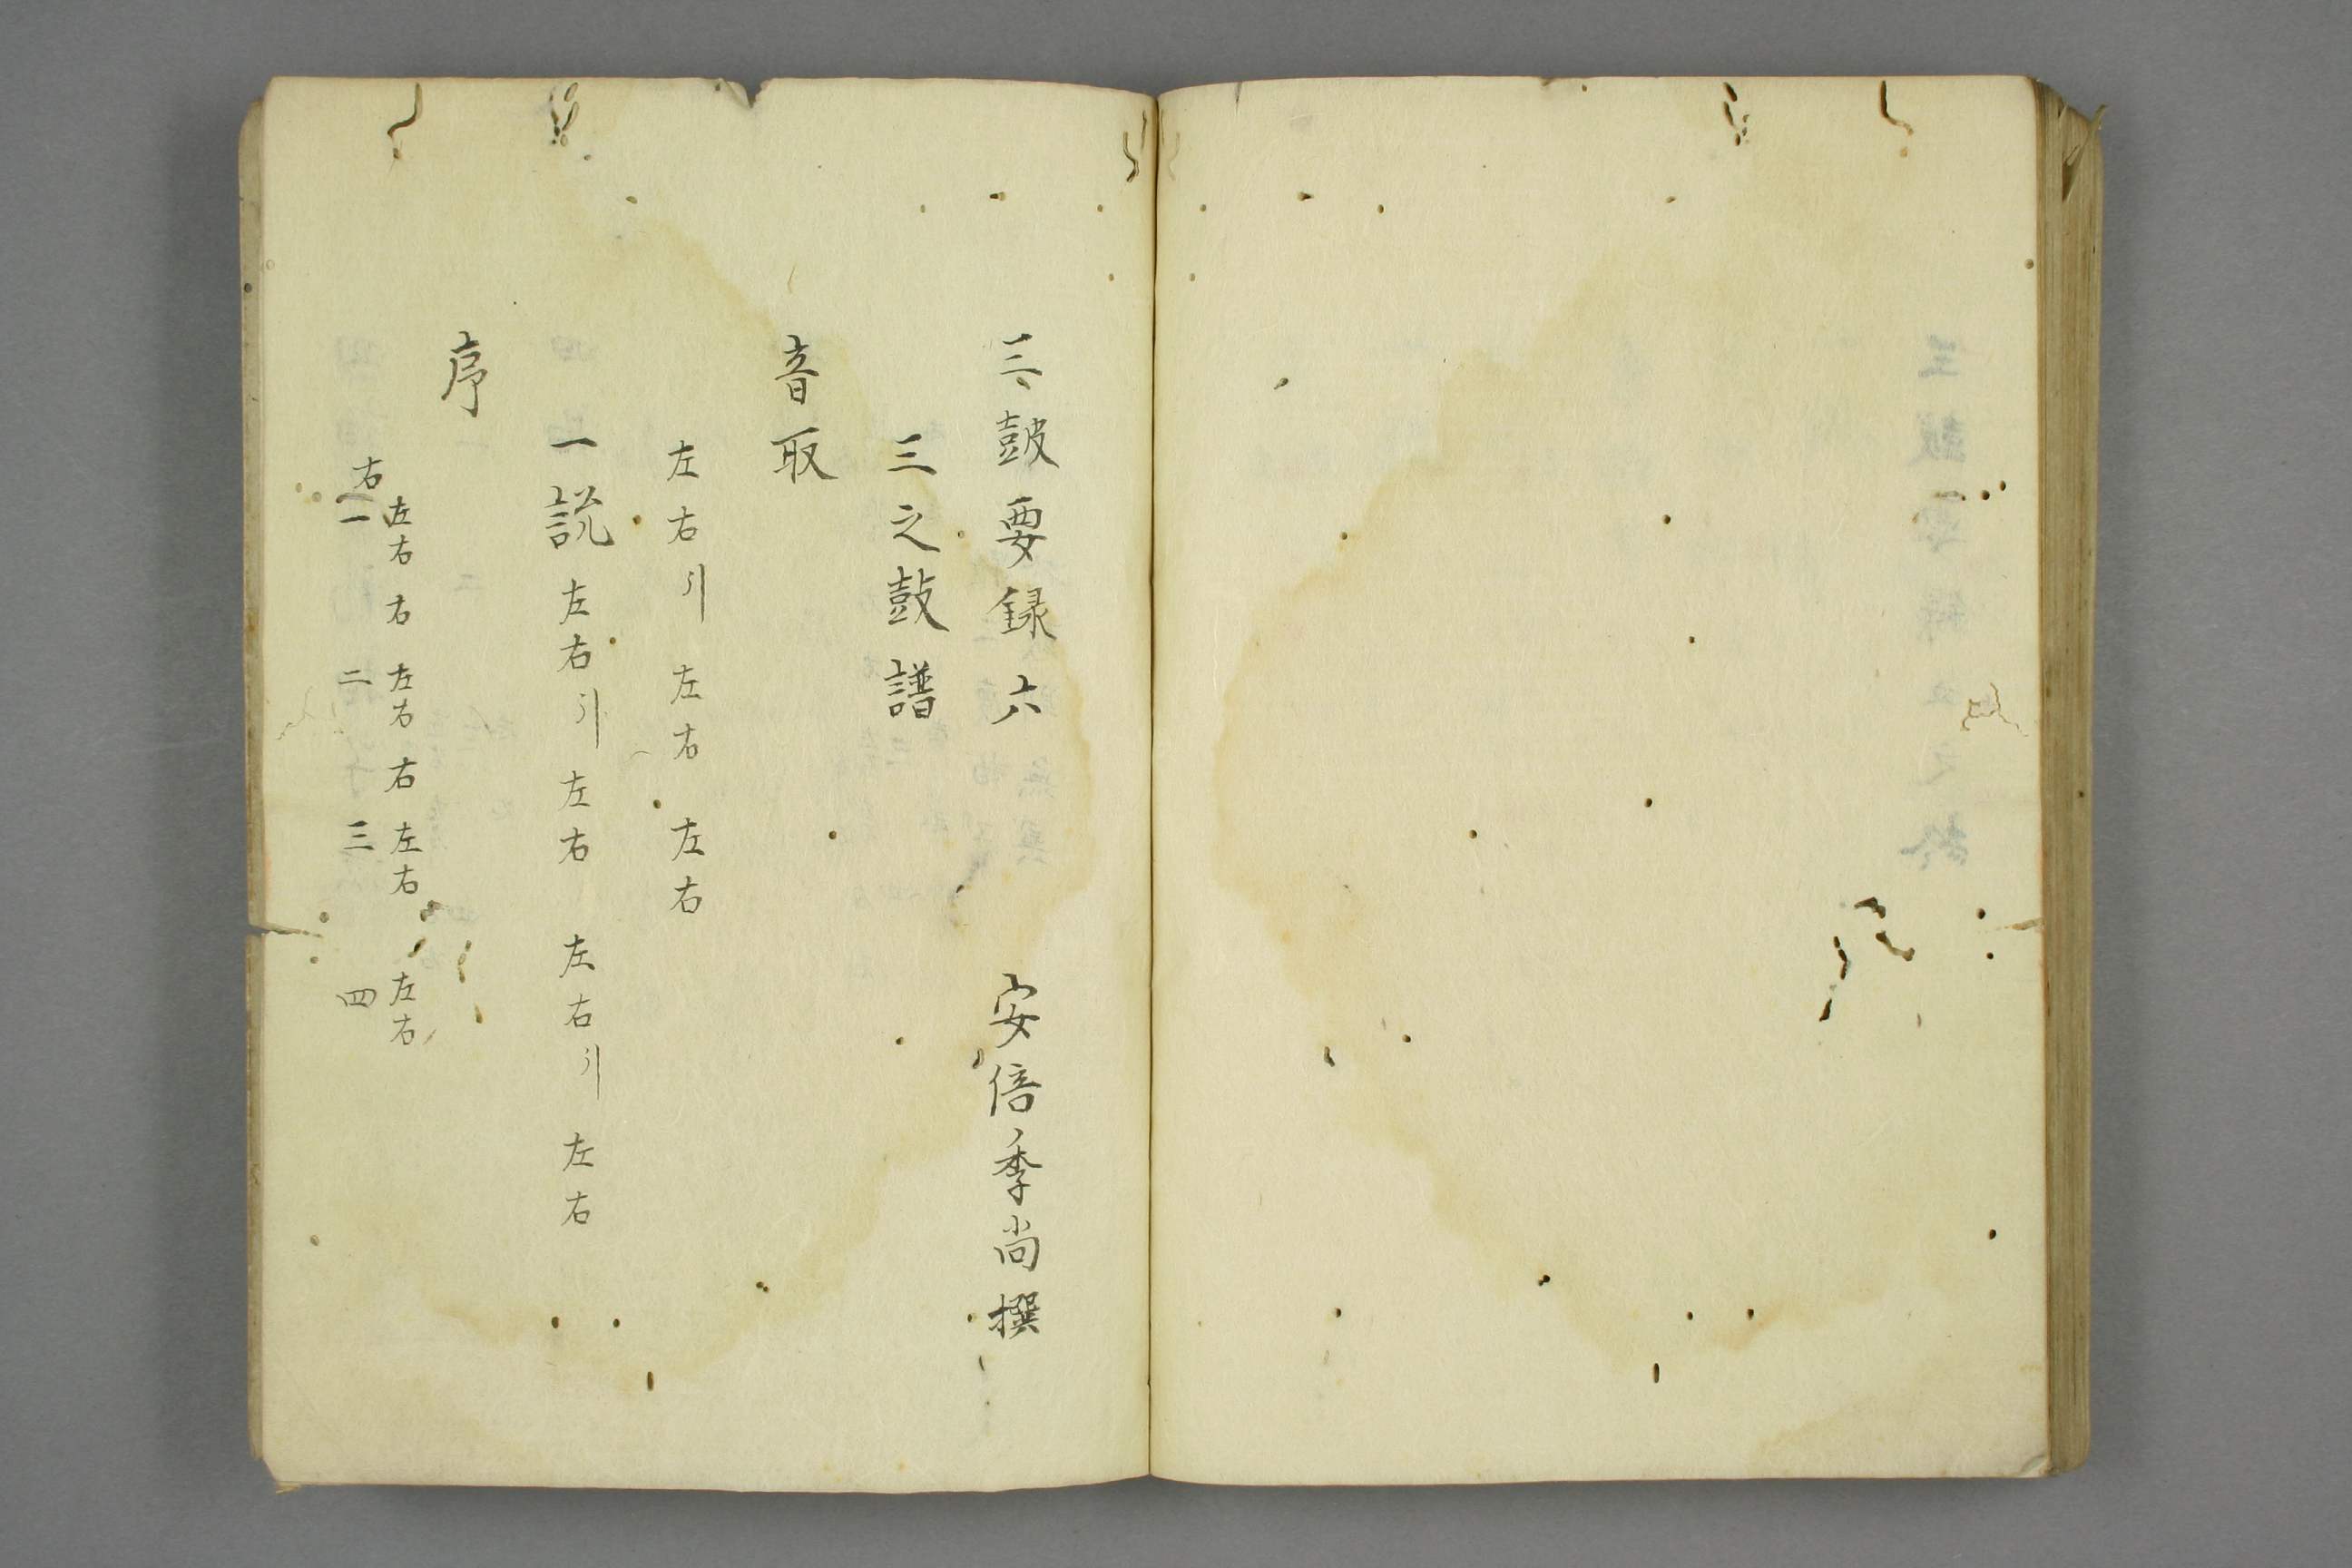 三鼓要録六　安倍季尚撰
三之鼓譜
音取
左右引　左右　左右
一説　左右引　左右　左右引　左右
序
左右　右　左右　右　左右　左右
右一　二　三　四